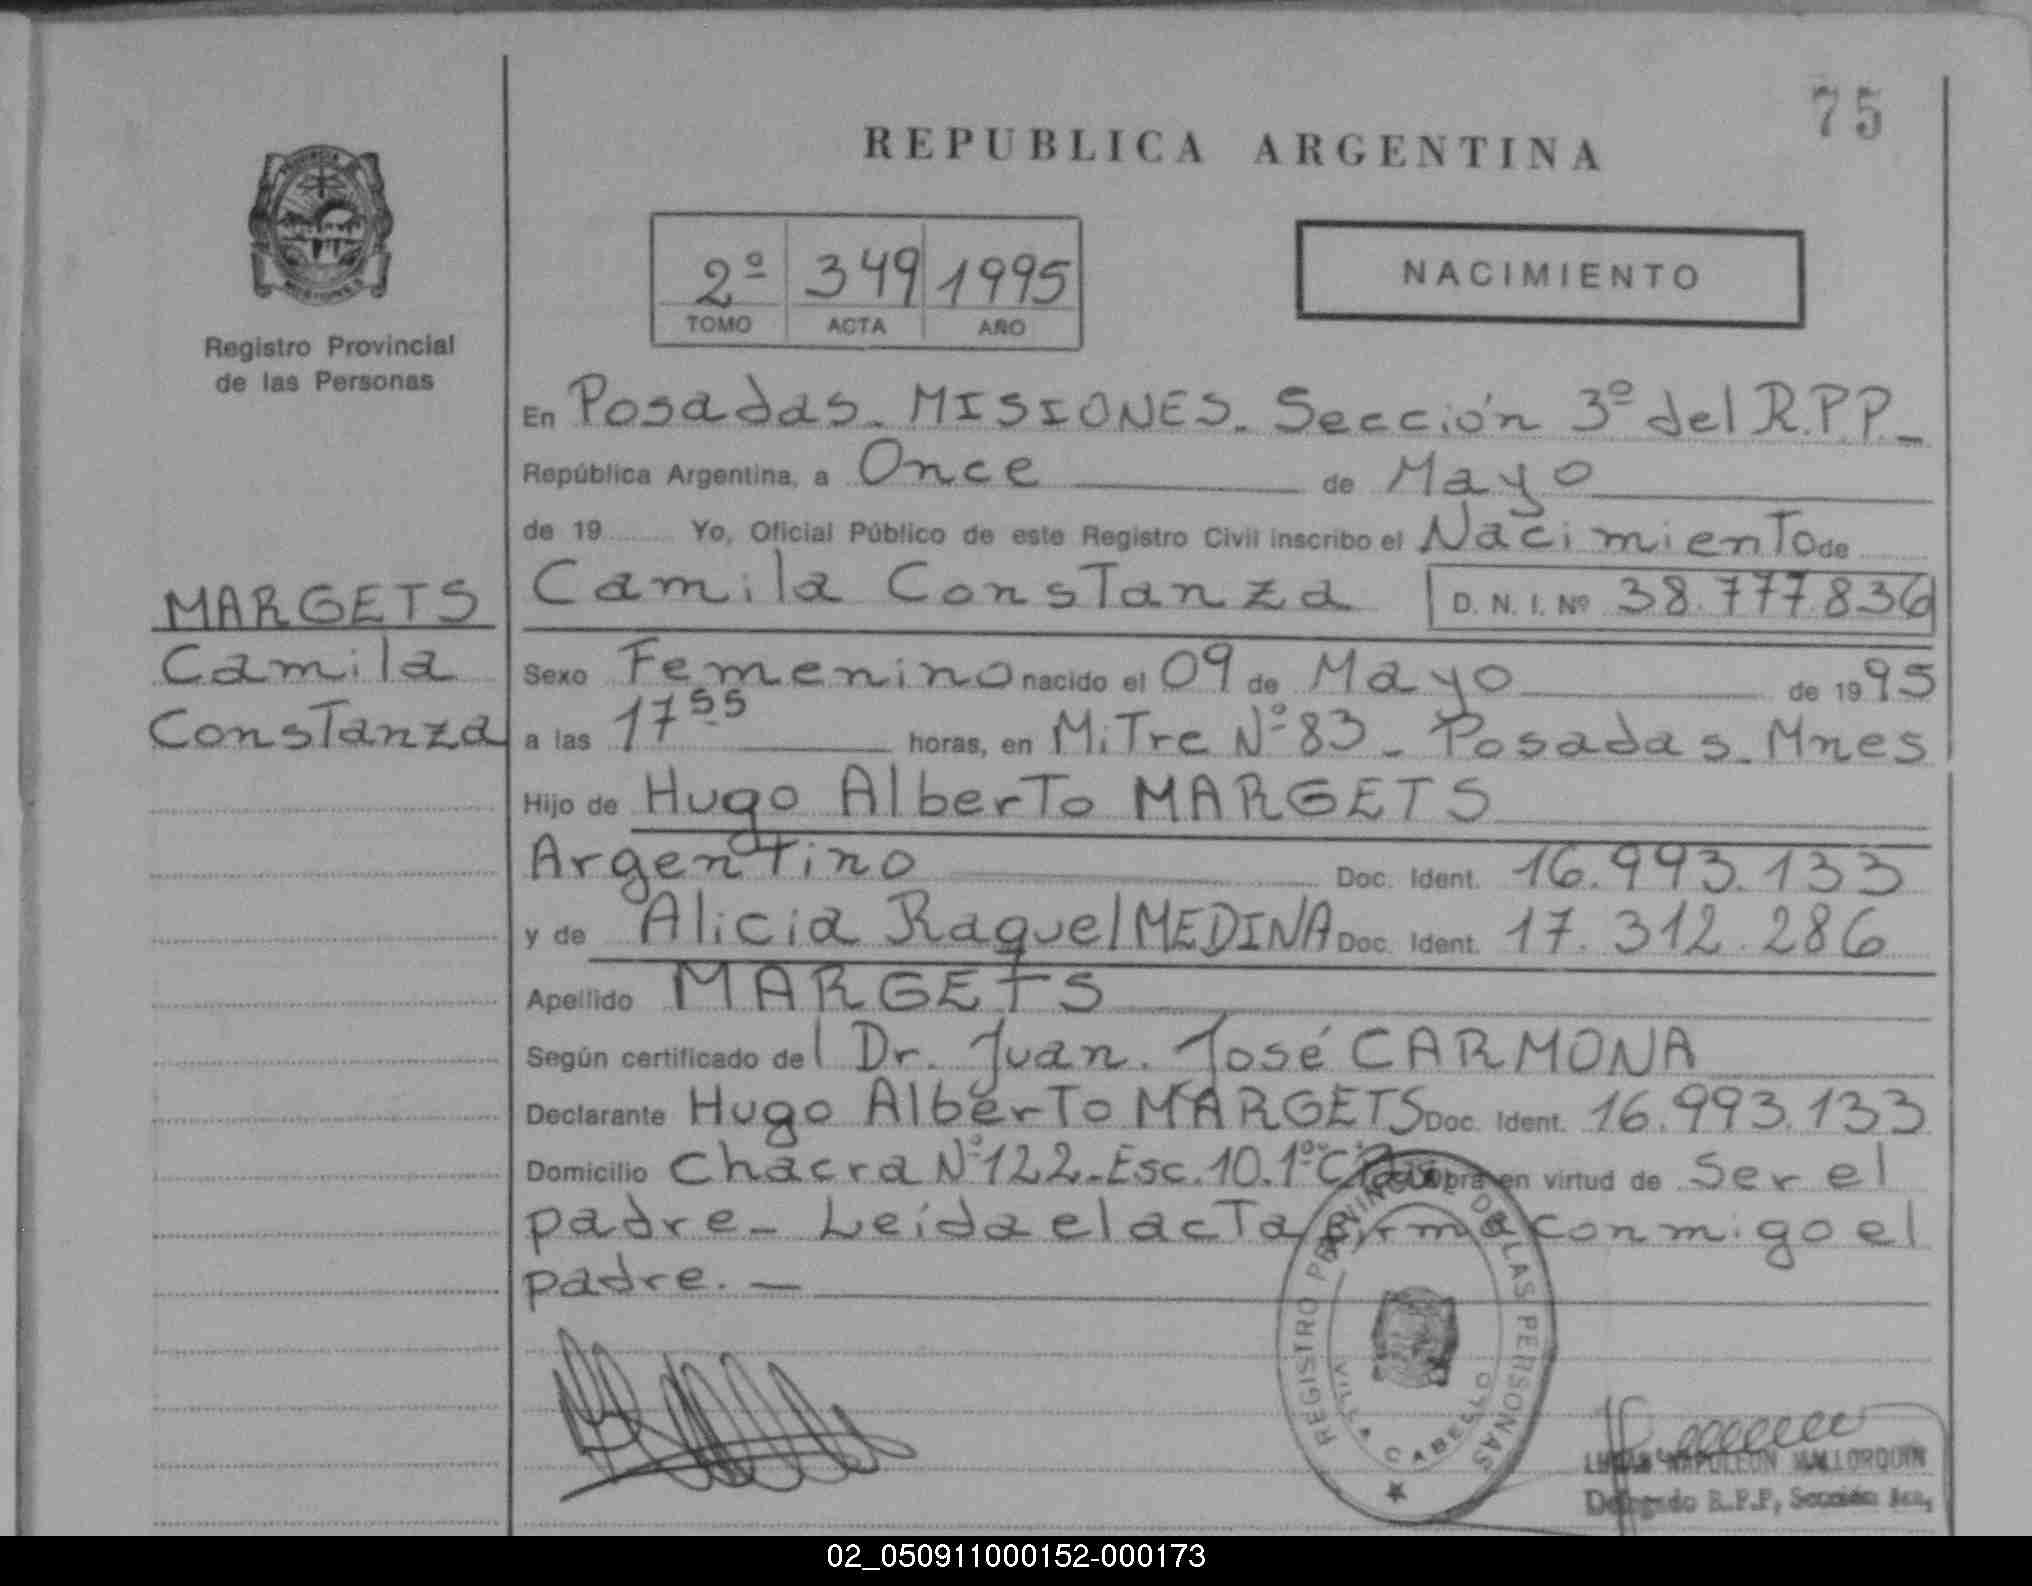 75
REPUBLICA ARGENTINA
2º 349 1995
TOMO ACTA AÑO
NACIMIENTO
Registro Provincial
de las Personas
MARGETS
Camila
Constanza
En Posadas. MISIONES. Sección 3º del R.P.P.
República Argentina, a Once de Mayo
de 19 Yo, Oficial Público de este Registro Civil inscribo el Nacimiento de
Camila Constanza D. N. I. Nº 38.777.836
Sexo Femenino nacido el 09 de Mayo de 1995
a las 17 55 horas, en Mitre Nº 83 - Posadas. Mnes
Hijo de Hugo Alberto MARGETS
Argentino Doc. Ident. 16.993.133
y de Alicia Raquel MEDINA Doc. Ident. 17.312.286
Apellido MARGETS
Según certificado del Dr. Juan. José CARMONA
Declarante Hugo Alberto MARGETS Doc. Ident. 16.993.133
Domicilio Chacra Nº 122-Esc. 10.1º en virtud de Ser el
padre - Leída el acta firma conmigo el
padre. -
REGISTRO PROVINCIAL DE LAS PERSONAS
VILLA CABELLO
NAPOLEON MALLORQUIN
Delegado R.P.P, Sección
02_050911000152-000173